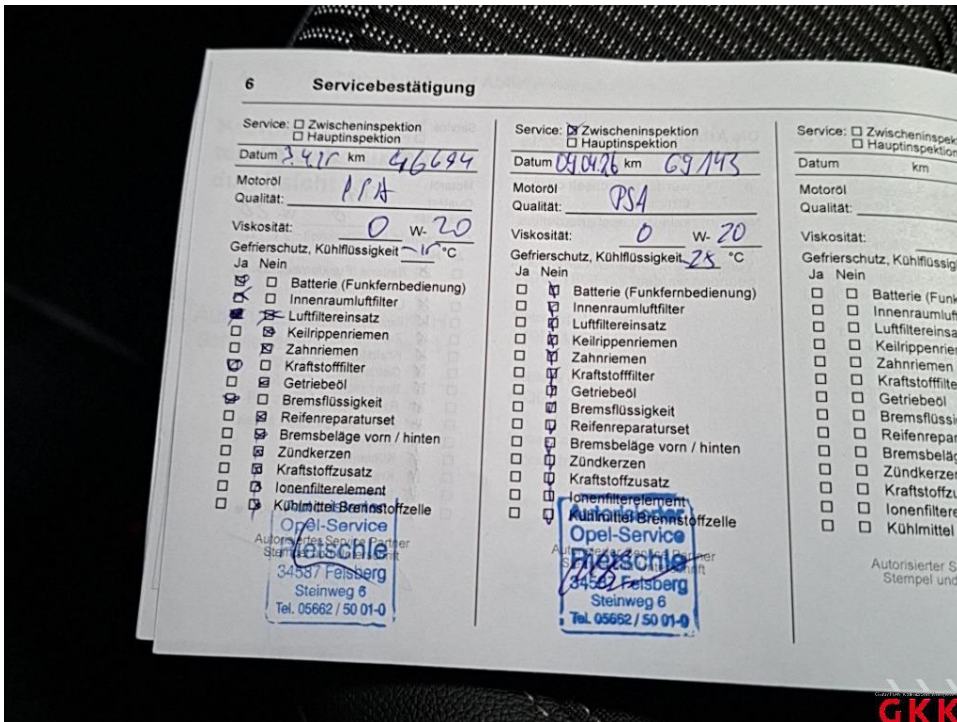 6 Servicebestätigung
Service: Zwischeninspektion
Hauptinspektion
Datum km 46694
Motoröl
Qualität:
Viskosität: 0 W- 20
Gefrierschutz, Kühlflüssigkeit °C
Ja Nein
Batterie (Funkfernbedienung)
Innenraumluftfilter
Luftfiltereinsatz
Keilrippenriemen
Zahnriemen
Kraftstofffilter
Getriebeöl
Bremsflüssigkeit
Reifenreparaturset
Bremsbeläge vorn / hinten
Zündkerzen
Kraftstoffzusatz
Ionenfilterelement
Kühlmittel Brennstoffzelle
Opel-Service
Autorisiertes Service Partner
Stempel und Unterschrift
34587 Felsberg
Steinweg 6
Tel. 05662 / 50 01-0
Service: Zwischeninspektion
Hauptinspektion
Datum 09.04.26 km 69143
Motoröl
Qualität: PSA
Viskosität: 0 W- 20
Gefrierschutz, Kühlflüssigkeit °C
Ja Nein
Batterie (Funkfernbedienung)
Innenraumluftfilter
Luftfiltereinsatz
Keilrippenriemen
Zahnriemen
Kraftstofffilter
Getriebeöl
Bremsflüssigkeit
Reifenreparaturset
Bremsbeläge vorn / hinten
Zündkerzen
Kraftstoffzusatz
Ionenfilterelement
Kühlmittel Brennstoffzelle
Autorisierter
Opel-Service
34587 Felsberg
Steinweg 6
Tel. 05662 / 50 01-0
Service: Zwischeninspek
Hauptinspektion
Datum km
Motoröl
Qualität:
Viskosität:
Gefrierschutz, Kühlflüssig
Ja Nein
Batterie (Funk
Innenraumluft
Luftfiltereinsa
Keilrippenrie
Zahnriemen
Kraftstofffilte
Getriebeöl
Bremsflüssi
Reifenrepar
Bremsbeläg
Zündkerzen
Kraftstoffzu
Ionenfiltere
Kühlmittel
Autorisierter S
Stempel und
GKK